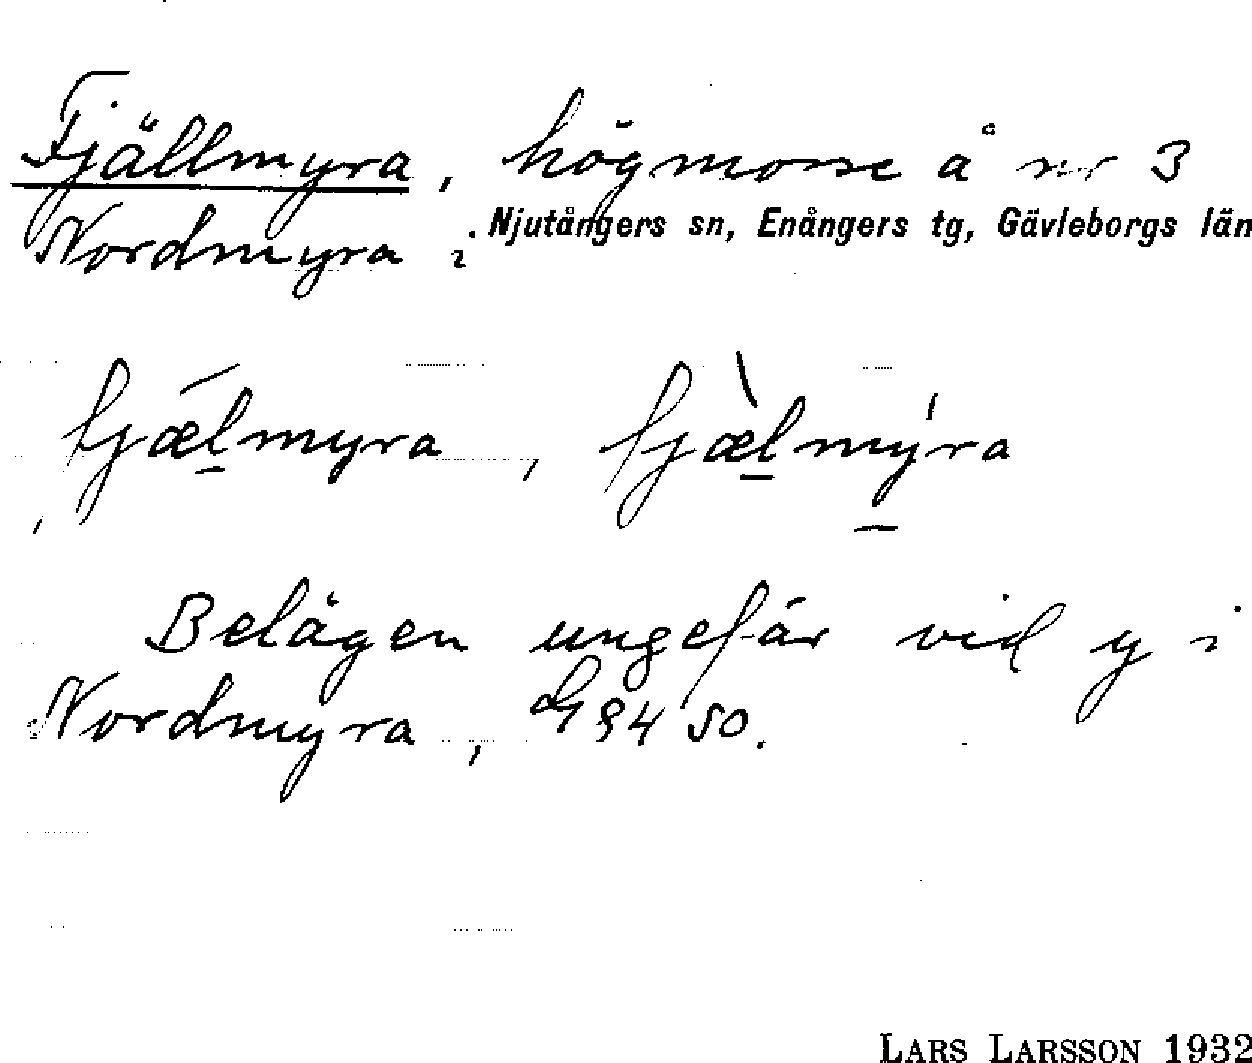 Fjällmyra, högmosse å nr 3
Nordmyra i Njutångers sn, Enångers tg, Gävleborgs län
fjǽlmyra, fjæ̀lmýra
Belägen ungefär vid y i
Nordmyra, 94 SO.
LARS LARSSON 1932